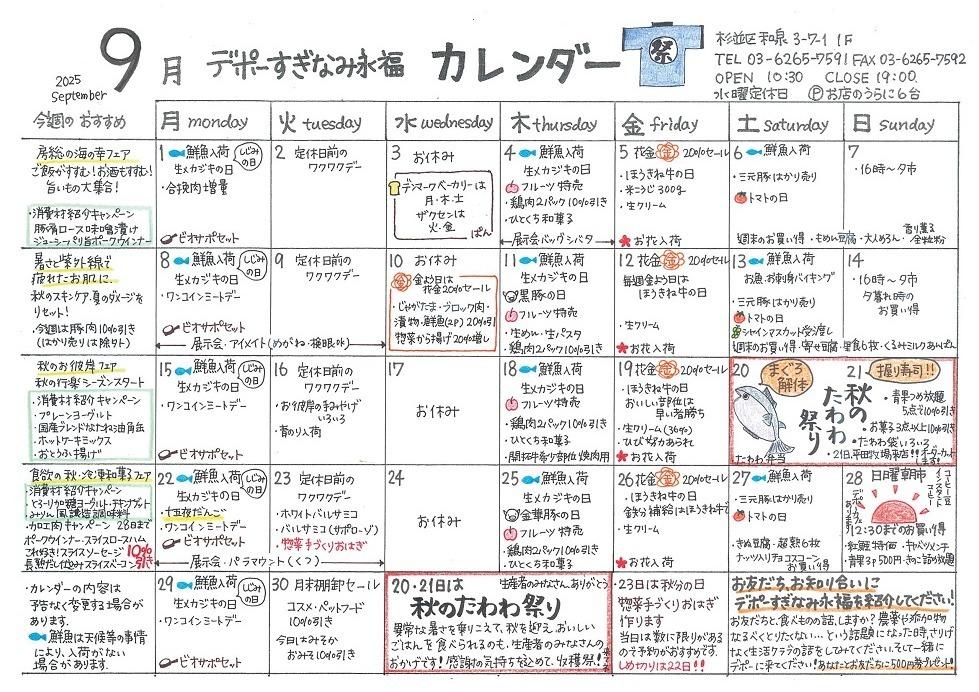 2025
September
9月 デポーすぎなみ永福 カレンダー
祭
杉並区和泉3-7-1 1F
TEL 03-6265-7591 FAX 03-6265-7592
OPEN 10:30 CLOSE 19:00
水曜定休日 Ⓟお店のうらに6台
今週のおすすめ
月 monday
火 tuesday
水 wednesday
木 thursday
金 friday
土 saturday
日 sunday
房総の海の幸フェア
ご飯がすすむ!お酒もすすむ!
旨いもの大集合!
・消費材紹介キャンペーン
豚肩ロース味噌漬け
ジューシーパリ旨ポークウインナー
1 鮮魚入荷
しじみの日
生メカジキの日
・合挽肉増量
ビオサポセット
2 定休日前の
ワクワクデー
3 お休み
デンマークベーカリーは
月・木・土
ザクセンは
火・金
ぱん
4 鮮魚入荷
生メカジキの日
フルーツ特売
・鶏肉2パック10%引き
・ひとくち和菓子
展示会バッグシバタ
5 花金㊎20%セール
・ほうきね牛の日
・米こうじ300g
・生クリーム
お花入荷
6 鮮魚入荷
・三元豚はかり売り
トマトの日
7
・16時〜夕市
週末のお買い得・もめん豆腐・大人めろん・香り薫る全粒粉
暑さと紫外線で
疲れたお肌に
秋のスキンケア、夏のダメージを
リセット!
今週は豚肉10%引き
(はかり売りは除外)
8 鮮魚入荷
しじみの日
生メカジキの日
・ワンコインミートデー
ビオサポセット
9 定休日前の
ワクワクデー
展示会・アイメイト(めがね・検眼ok)
10 お休み
㊎金よう日は
花金20%セール
・じゃがたま・ブロック肉・
漬物・鮮魚(2P)20%引
惣菜から揚げ20%増し
11 鮮魚入荷
生メカジキの日
黒豚の日
フルーツ特売
・生めん・生パスタ
・鶏肉2パック10%引き
12 花金㊎20%セール
毎週金よう日は
ほうきね牛の日
・生クリーム
お花入荷
13 鮮魚入荷
お魚、お刺身バイキング
・三元豚はかり売り
トマトの日
シャインマスカット受渡し
14
・16時〜夕市
夕暮れ時の
お買い得
週末のお買い得・寄せ豆腐・里食6枚・くるみミルクあんぱん
秋のお彼岸フェア
秋の行楽シーズンスタート
・消費材紹介キャンペーン
・プレーンヨーグルト
・国産ブレンドなたね油角缶
・ホットケーキミックス
・おとうふ揚げ
15 鮮魚入荷
しじみの日
生メカジキの日
・ワンコインミートデー
ビオサポセット
16 定休日前の
ワクワクデー
・お彼岸の手みやげ
いろいろ
・昔のり入荷
17
お休み
18 鮮魚入荷
生メカジキの日
フルーツ特売
・鶏肉2パック10%引き
・ひとくち和菓子
・開拓牛希少部位焼肉用
19 花金㊎20%セール
・ほうきね牛の日
おいしい部位は
早い者勝ち
・生クリーム(36%)
・ひび物かあられ
お花入荷
20
まぐろ解体
21
握り寿司!!
秋のたわわ祭り
・青果つめ放題
5点で10%引き
・お菓子3点以上10%引き
・たわわ袋いろいろ
・21日、平田牧場来店!!
たわわ弁当
食欲の秋・冷凍和菓子フェア
・消費材紹介キャンペーン
・加工肉キャンペーン 28日まで
ポークウインナー・スライスロースハム
これ好き!スライスソーセージ
長熟だし仕込みスライスベーコン
10%引き
22 鮮魚入荷
しじみの日
生メカジキの日
・十五夜だんご
・ワンコインミートデー
ビオサポセット
23 定休日前の
ワクワクデー
・ホワイトバルサミコ
・バルサミコ(サポローゾ)
・惣菜手づくりおはぎ
展示会・パラマウント(くつ)
24
お休み
25 鮮魚入荷
生メカジキの日
金華豚の日
フルーツ特売
・鶏肉2パック10%引き
・ひとくち和菓子
26 花金㊎20%セール
・ほうきね牛の日
鉄分補給はほうきね牛で
・生クリーム
お花入荷
27 鮮魚入荷
・三元豚はかり売り
トマトの日
・きぬ豆腐・超熟6枚
ナッツ入りチョココーン
お買い得
28 日曜朝市
12:30までのお買い得
・紅鮭特価・キャベツメンチ
・青果3P 500円・きのこ詰め放題
・カレンダーの内容は
予告なく変更する場合が
あります。
鮮魚は天候等の事情
により、入荷がない
場合があります。
29 鮮魚入荷
しじみの日
生メカジキの日
・ワンコインミートデー
ビオサポセット
30 月末棚卸セール
コスメ・ペットフード
10%引き
今日はみそか
おみそ10%引き
20・21日は
生産者のみなさん、ありがとう
秋のたわわ祭り
異常な暑さを乗りこえて、秋を迎え、おいしい
ごはんを食べられるのも、生産者のみなさんの
おかげです!感謝の気持ちを込めて、収穫祭!
・23日は秋分の日
惣菜手づくりおはぎ
作ります
当日は数に限りがある
ので予約がおすすめです。
しめ切りは22日!!
お友だち、お知り合いに
デポーすぎなみ永福を紹介してください!
お友だちと、食べものの話、しますか?農薬や添加物
なるべくとりたくない…という話題になった時、さりげ
なく生活クラブの話をしてみてください。そして一緒に
デポーに来てください!あなたとお友だちに500円券プレゼント!